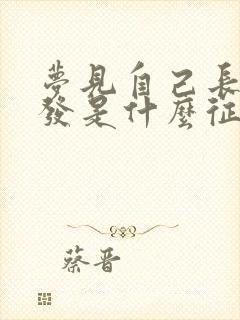 夢見自己長
發是什麼征
蔡晋